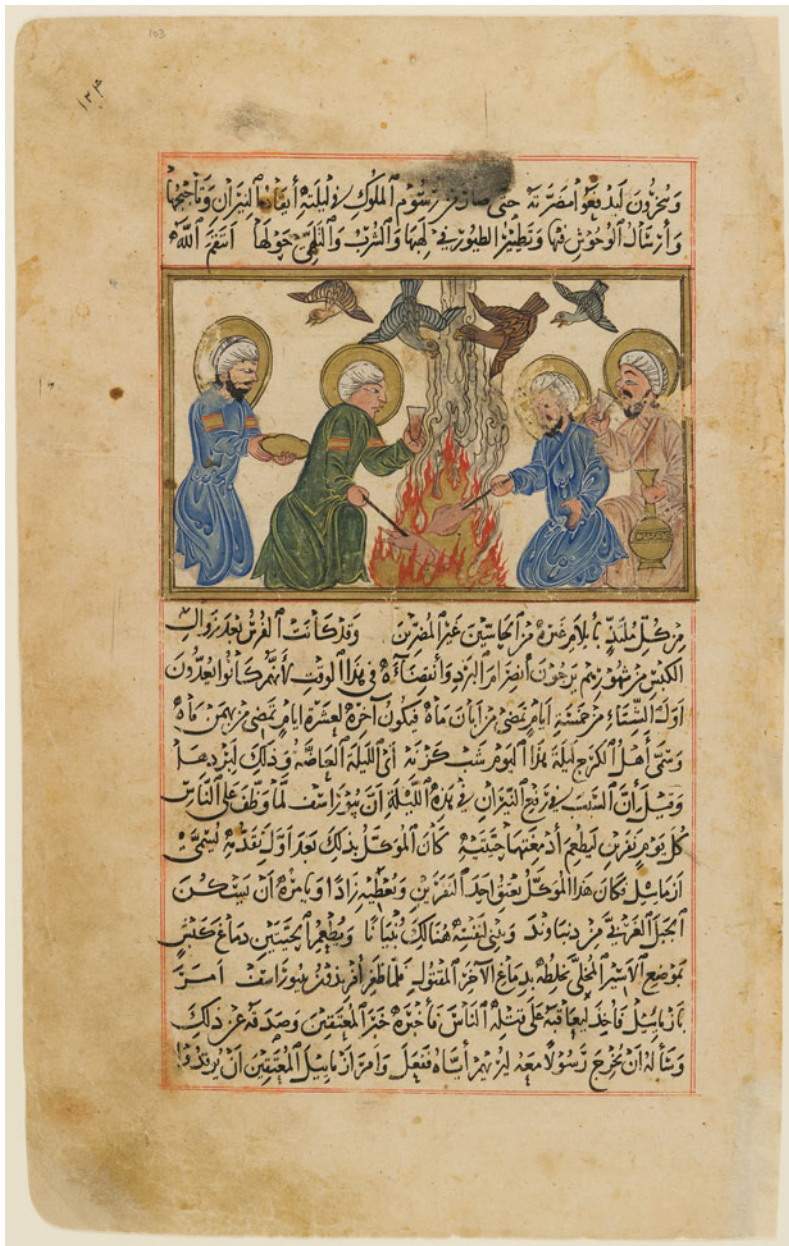 103
١٣٤
ويدخنون ليدفعوا مضرته حتى صار من رسوم الملوك في ليلته أيقاد النيران وتأجيجها
وأرسال الوحوش فيها وتطيير الطيور في لهبها والشرب والتلهي حولها انتقم الله
من كل متلذذ بأيلام غيره من الحاسين غير المضرين وقد كانت الفرس بعد زوال
الكبس من شهورهم يرجون انصرام البرد وانقضآءه في هذا الوقت لأنهم كانوا يعدون
اول الشتاء من خمسة أيام تمضي من أبان ماه فيكون آخره لعشرة ايام تمضي من بهمن ماه
وسمى أهل الكرج ليلة هذا اليوم شب كزنه أى الليلة العاضه وذلك لبردها
وقيل أن السبب في رفع النيران في هذه الليلة أن بيوراسف لما وظف على الناس
كل يوم نفرين ليطعم أدمغتهما حيتيه كان الموكل بذلك بعد أول تقدمه يسمى
ازمائيل فكان هذا الموكل يعتق احد النفرين ويعطيه زادا ويامره أن يسكن
الجبل الغربي من دنباوند ويبنى لنفسه هنالك بنيانا ويطعم الحيتين دماغ كبش
بموضع الأسير المخلى يخلطه بدماغ الآخر المقتول فلما ظفر أفريذون ببيوراسف امر
بأزمائيل فأخذ ليعاقبه على قتله الناس فأخبره خبر المعتقين وصدقه عن ذلك
وسأله أن يخرج رسولا معه ليريهم أياه ففعل وامر أزمائيل المعتقين أن يوقدوا